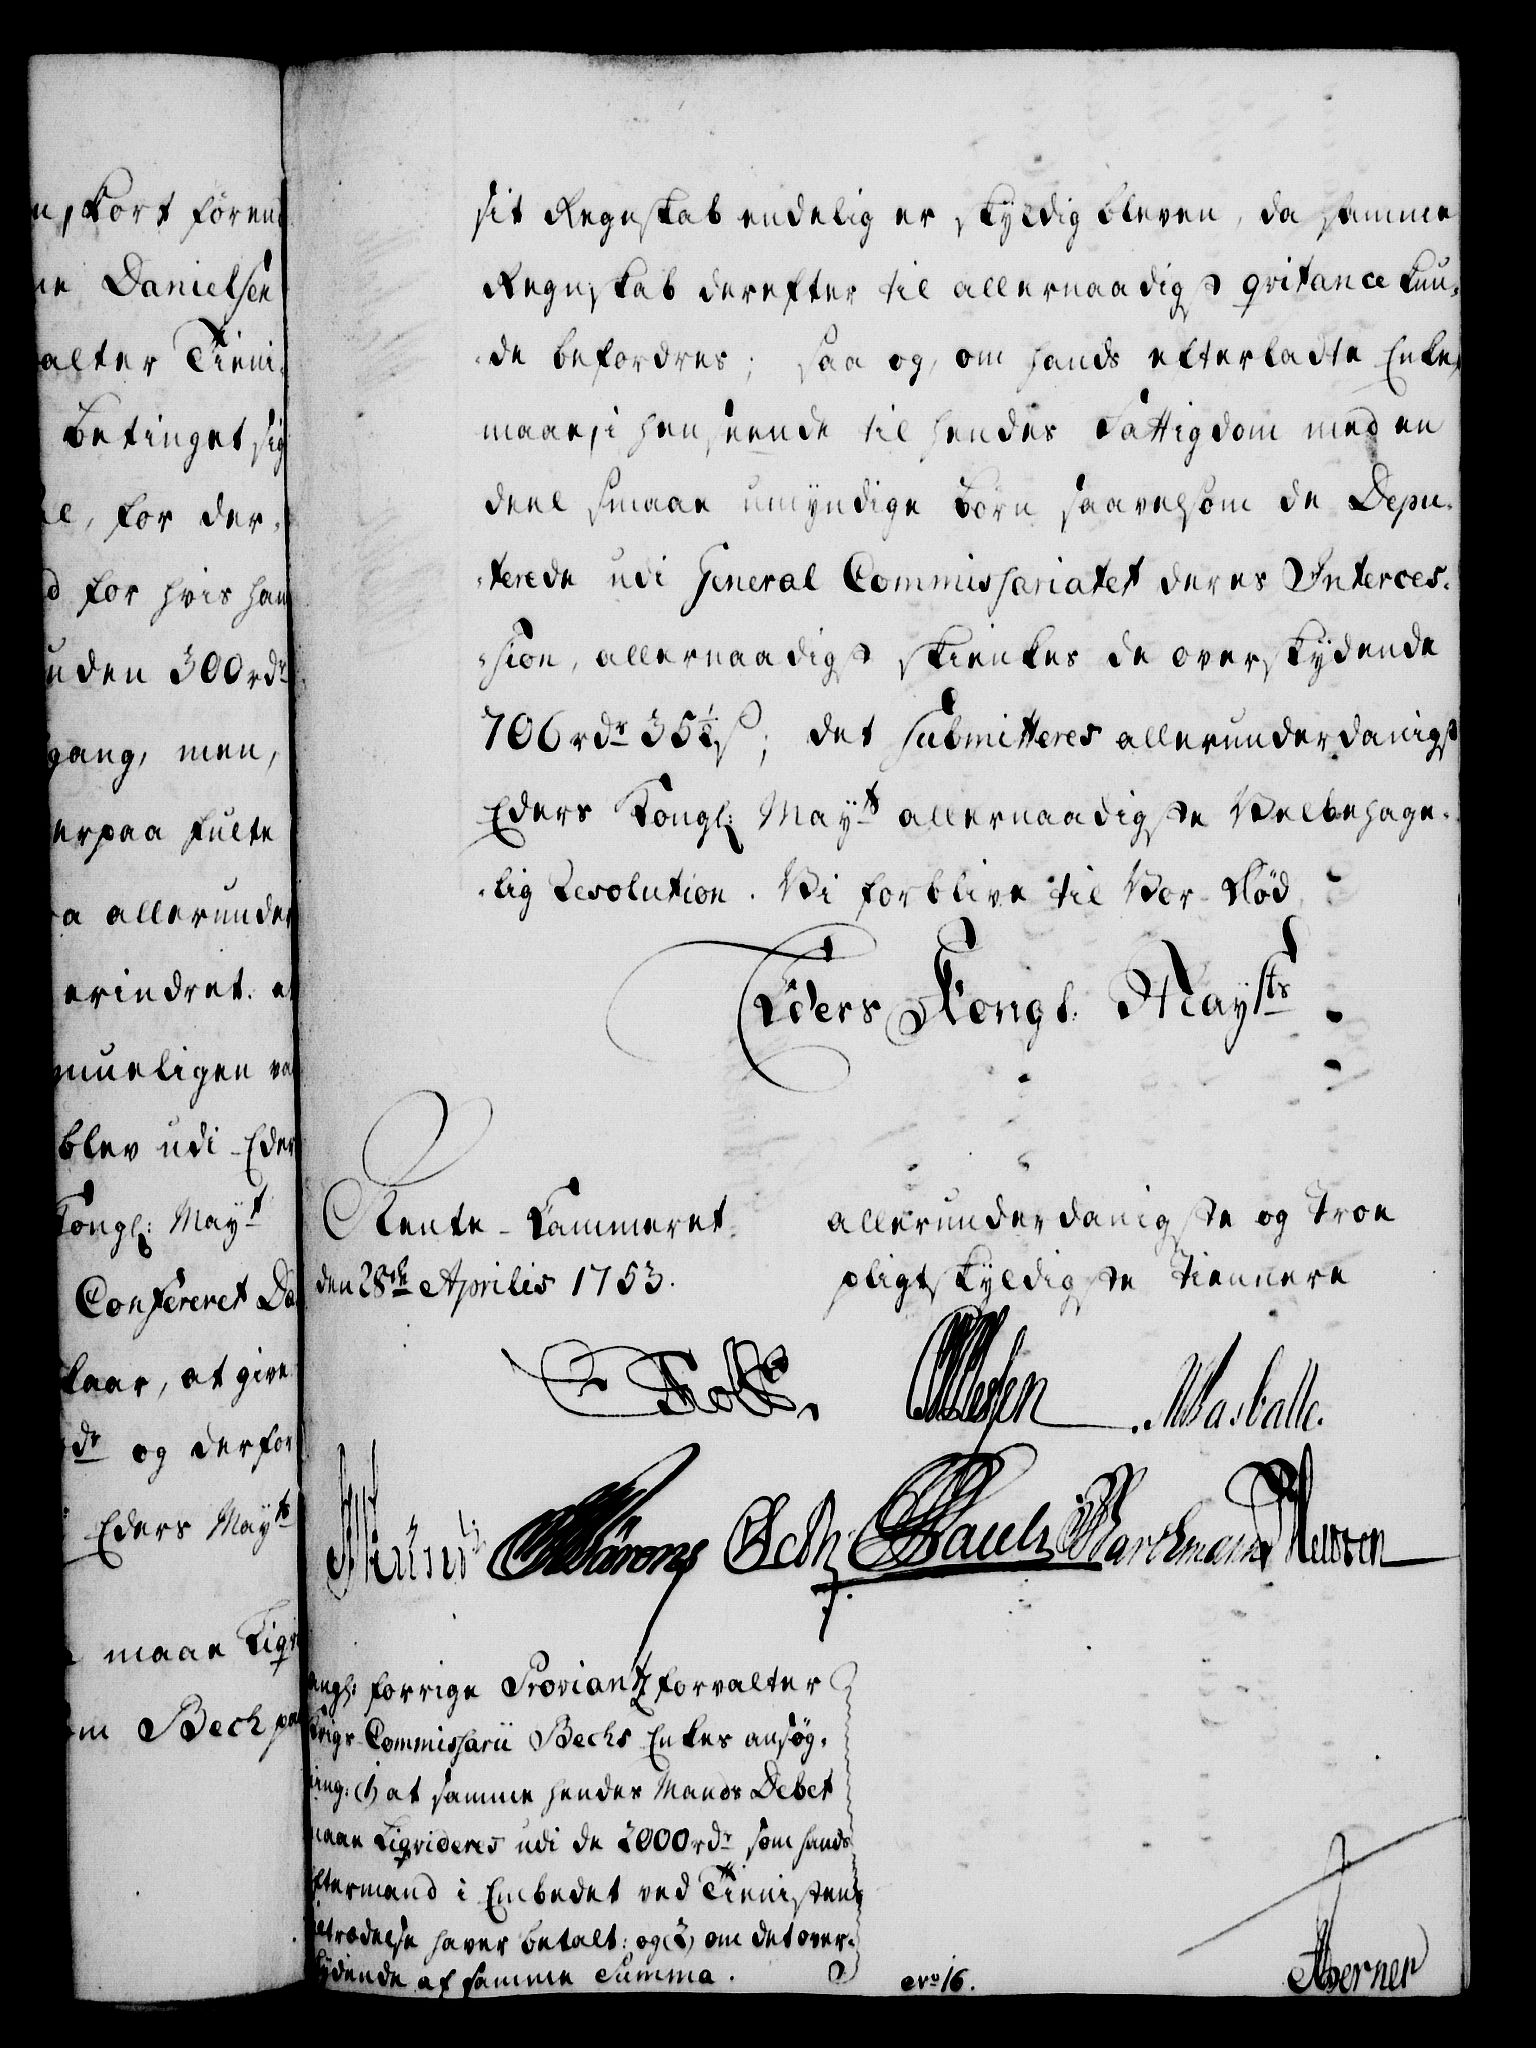 n, kort føren
ne Danielsen
alter Tieni-
betinget sig
for der-
d for hvis han
uden 300 rdr
gang, men,
erpaa fulte
a allerunder
erindret. at
mueligen va
blev udi Eder
Kongl: Mayt
Confereret Da
kaar, at give
dr og derfor
Eders Mayts
maae Liqvi
om Bech paa
sit Regnskab endelig er skyldig bleven, da samme
Regnskab derefter til allernaadigst qvitance kun-
-de befordres; saa og, om hands efterladte Enke,
maae, i henseende til hendes Fattigdom med en
deel smaae umyndige Børn saavelsom de Depu-
-terede udi General Commissariatet deres Interces-
-sion, allernaadigst skienkes de overskydende
706 rdr 35½ s; det submitteres allerunderdanigst
Eders Kongl: Mayts allernaadigste Velbehage-
-lig Resolution. Vi forblive til Vor Død
Eders Kongl. Maysts
Rente-Cammeret
den 28de Aprilis 1753.
allerunderdanigste og Troe
pligtskyldigste Tiennere
Holst.
Wasballe.
Bech Pauli Barchmann Nelssen
angl: forrige Proviantforvalter
Krigs-Commissarii Bechs Enkes ansøg-
ning: (1) at samme hendes Mands Debet
maae Liqvideres udi de 2000 rdr som hands
Eftermand i Embedet ved Tienistens
tiltrædelse haver betalt: og (2) om det over-
skydende af samme Summa.
No 16.
Werner